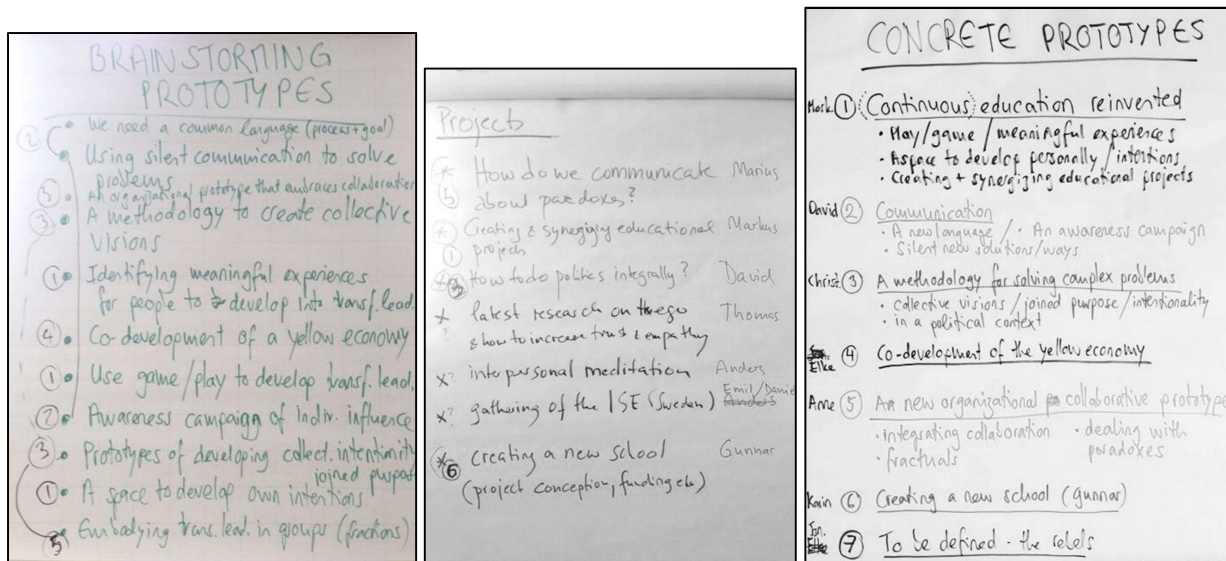 BRAINSTORMING
PROTOTYPES
② • We need a common language (process + goal)
• Using silent communication to solve
problems
⑤ • An organizational prototype that embraces collaboration
③ • A methodology to create collective
visions
① • Identifying meaningful experiences
for people to develop into transf. lead.
④ • Co-development of a yellow economy
① • Use game/play to develop transf. lead.
② • Awareness campaign of indiv. influence
③ • Prototypes of developing collect. intentionality
joined purpose
① • A space to develop own intentions
⑤ • Embodying trans. lead. in groups (fractions)
Projects
How do we communicate Marius
⑤ about paradoxes?
Creating & synergizing educational Markus
① projects
How to do politics integrally? David
x latest research on the ego Thomas
? & how to increase trust & empathy
x? interpersonal meditation Anders
x? gathering of the ISE (Sweden) Emil/Daniel
⑥ creating a new school Gunnar
(project conception, funding etc)
CONCRETE PROTOTYPES
Mark. ① (Continuous) education reinvented
• Play/game/meaningful experiences
• A space to develop personally/intentions
• Creating + synergizing educational projects
David ② Communication
• A new language / • An awareness campaign
• Silent new solutions/ways
Christ. ③ A methodology for solving complex problems
• collective visions/joined purpose/intentionality
• in a political context
Elke ④ Co-development of the yellow economy
Anne ⑤ An new organizational collaborative prototype
• integrating collaboration • dealing with
• fractuals paradoxes
Karin ⑥ Creating a new school (Gunnar)
Jon. ⑦ To be defined - the rebels